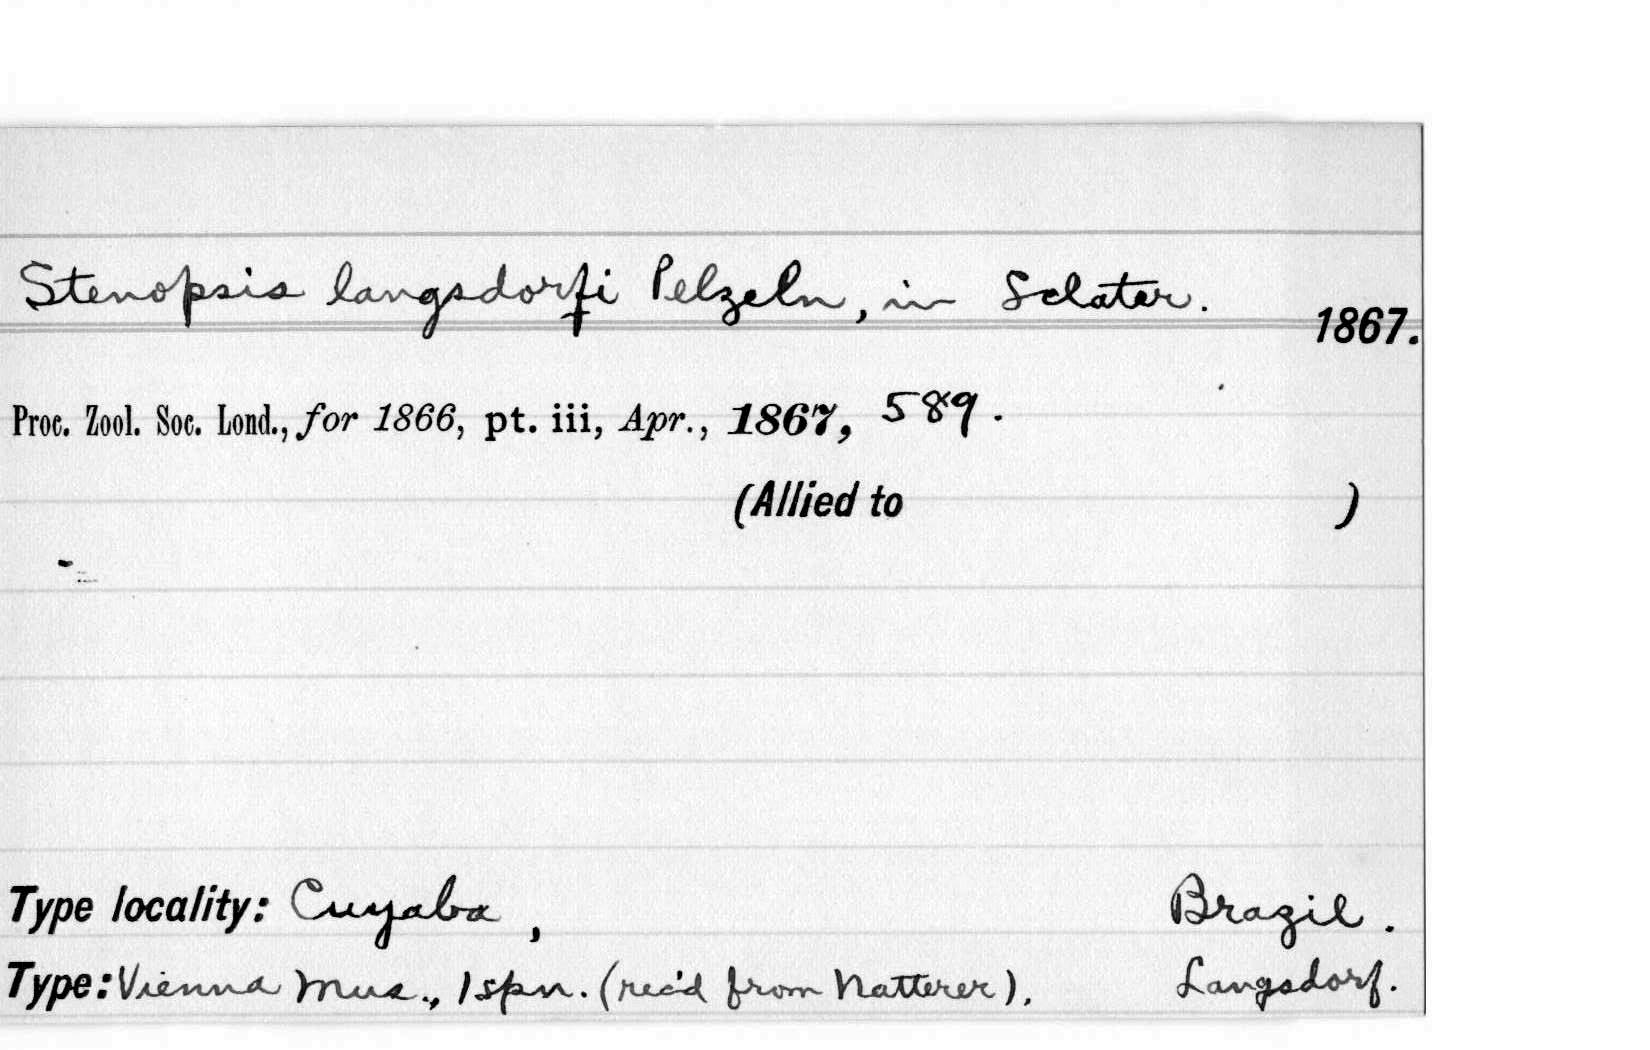 Stenopsis langsdorfi Pelzeln, in Sclater.
1867.
Proc. Zool. Soc. Lond., for 1866, pt. iii, Apr., 1867, 589.
(Allied to )
Type locality: Cuyaba, Brazil.
Type: Vienna Mus., 1 spn. (rec'd from Natterer). Langsdorf.